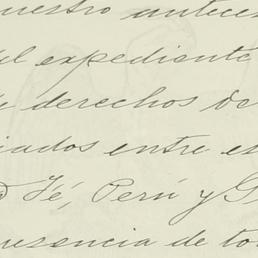 nuestro antece
el expediente
de derechos de
iados entre es
Fé, Perú y G
presencia de to